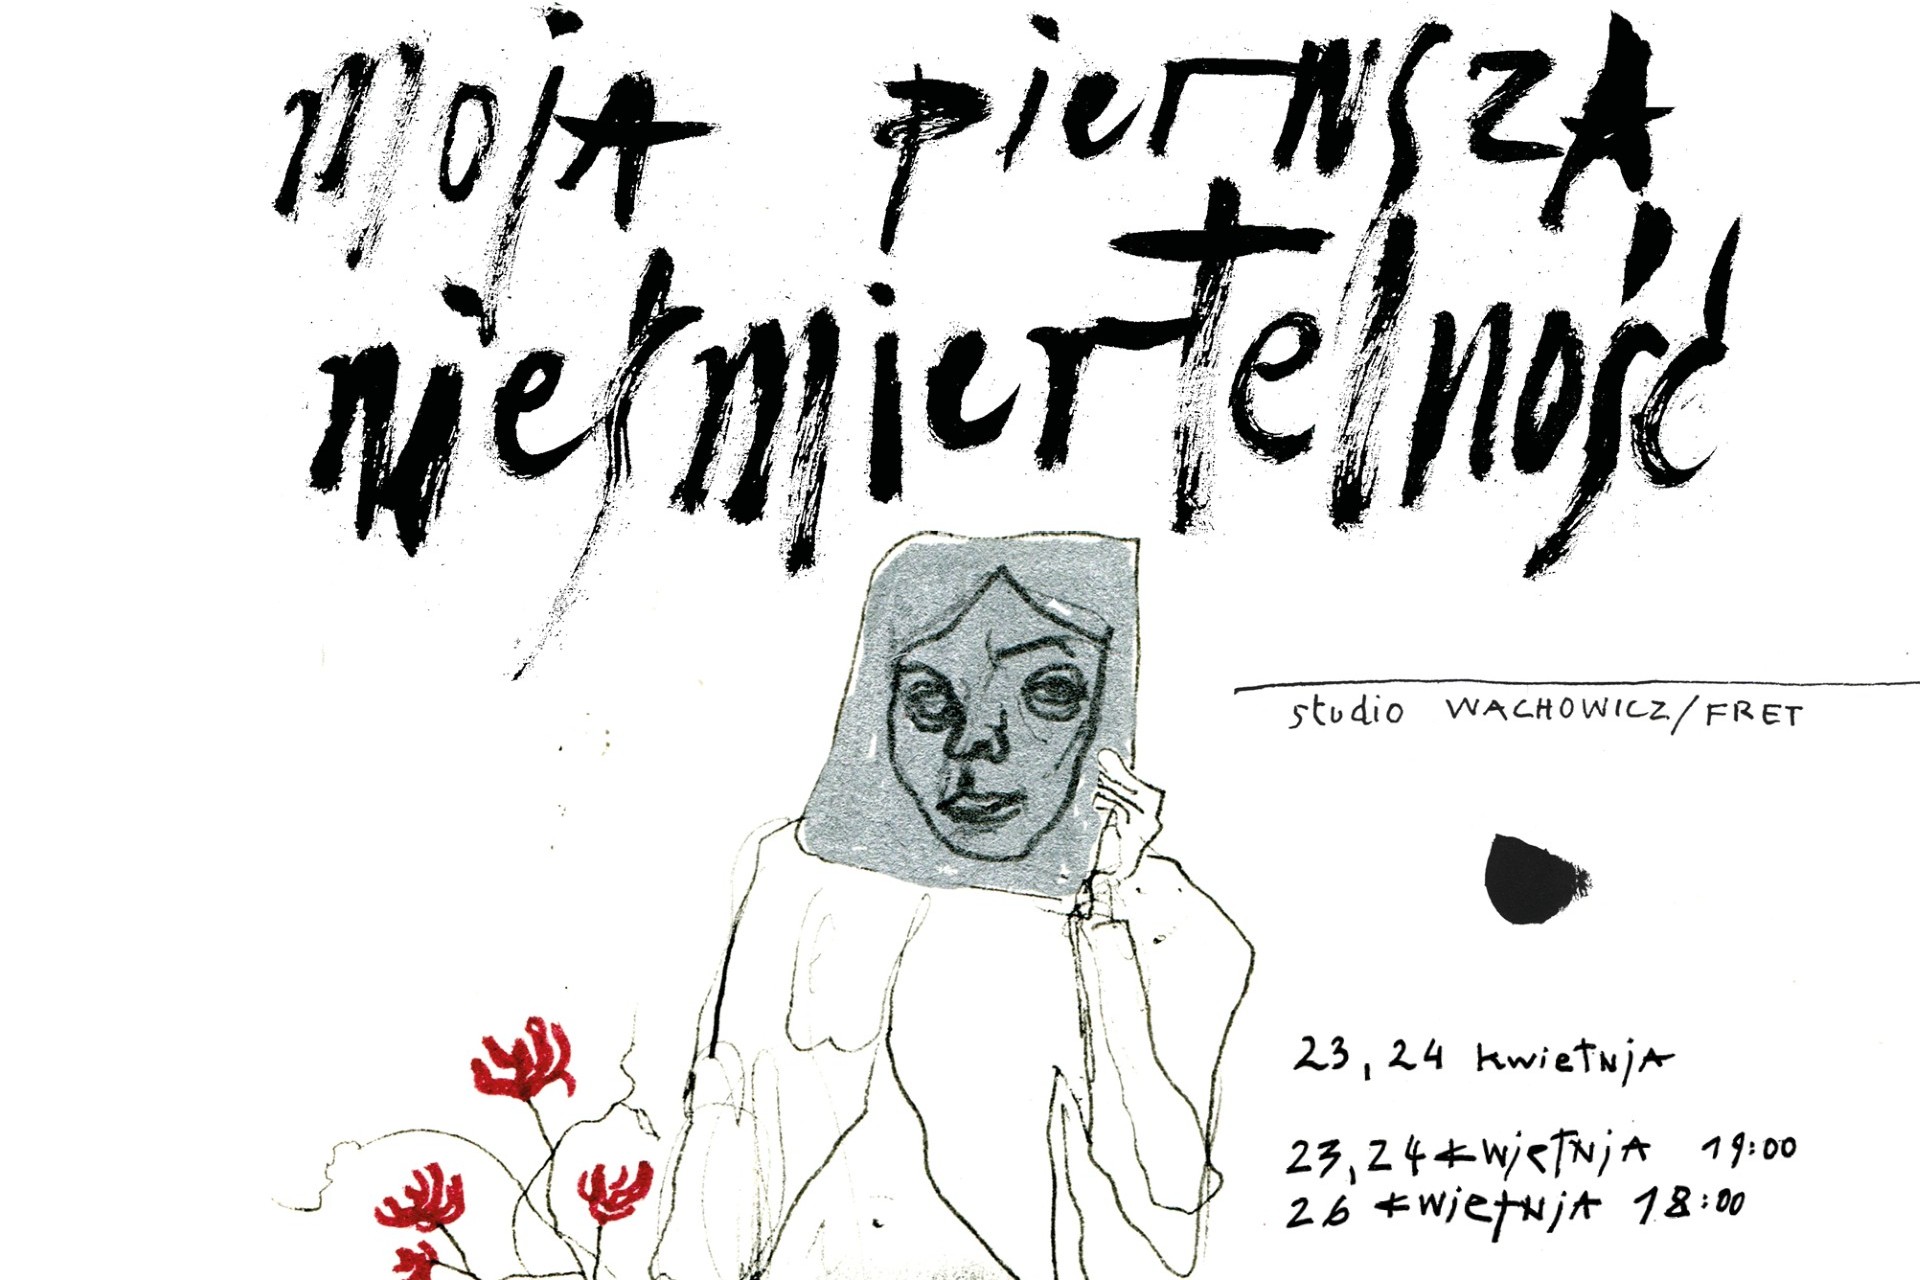 moja pierwsza
nieśmiertelność
studio WACHOWICZ/FRET
23, 24 kwietnja
23, 24 kwjetnja 19:00
26 kwietnja 18:00